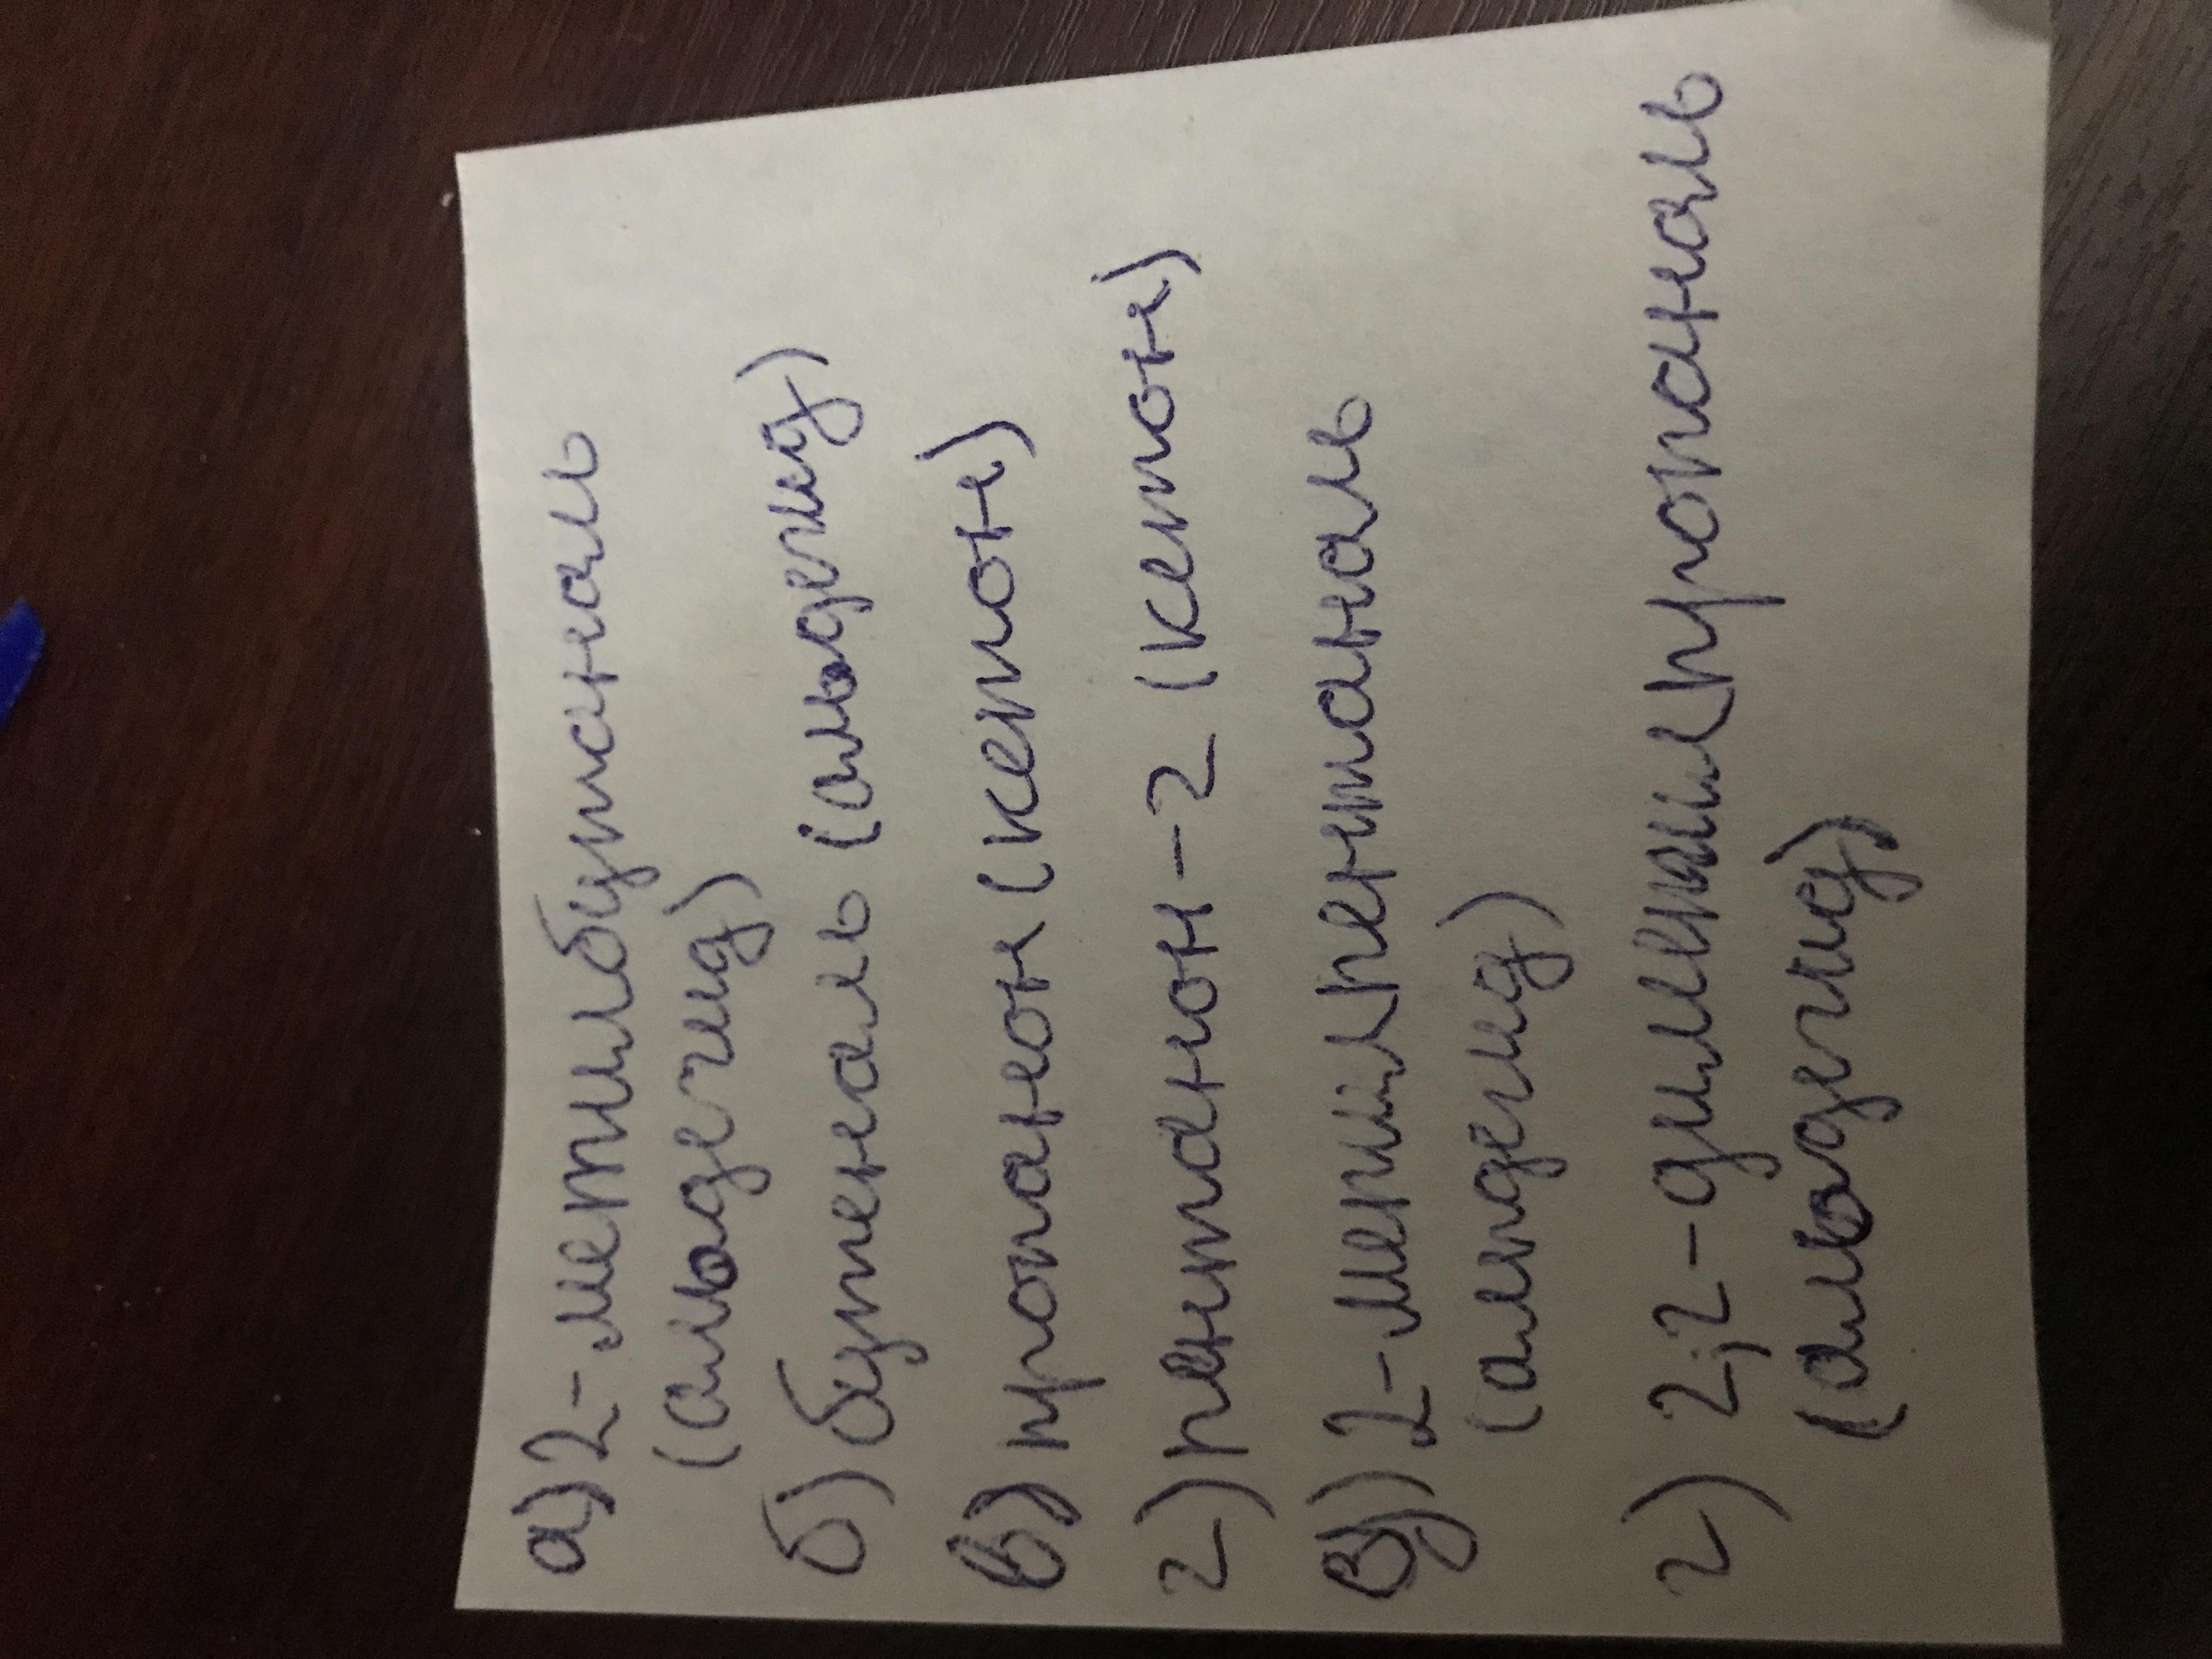 а) 2-метилбутаналь
(альдегид)
б) бутеналь (альдегид)
в) пропанон (кетон)
г) пентанон-2 (кетон)
д) 2-метилпентаналь
(альдегид)
г) 2,2-диметилпропаналь
(альдегид)